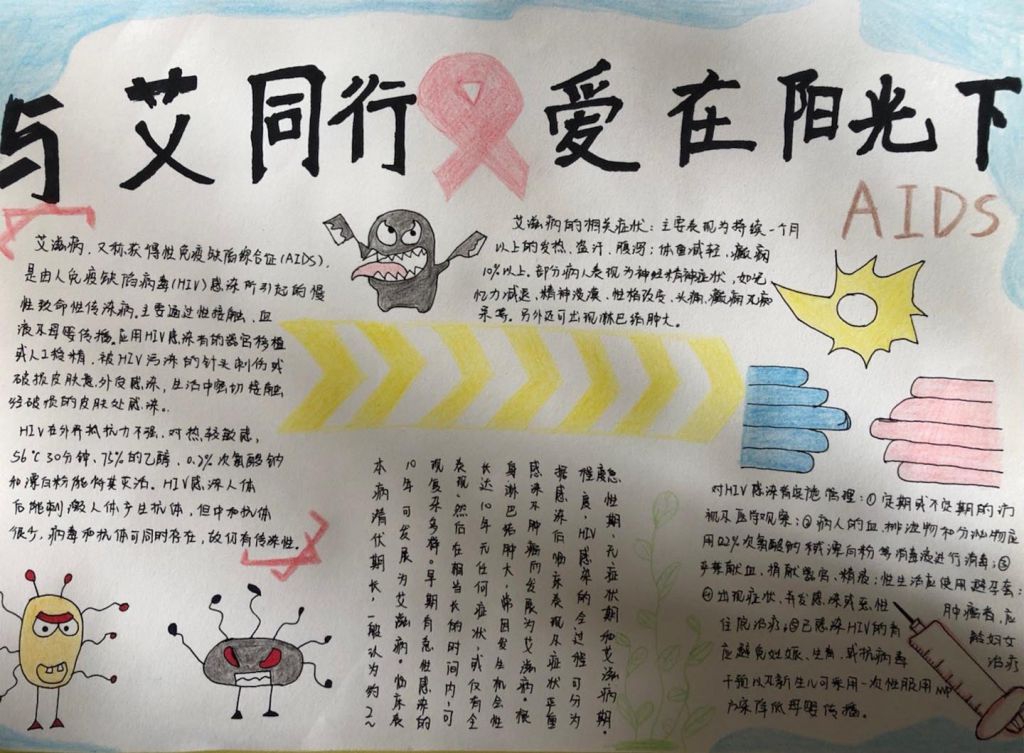 与艾同行 爱在阳光下
AIDS
艾滋病，又称获得性免疫缺陷综合征(AIDS)，
是由人免疫缺陷病毒(HIV)感染所引起的慢
性致命性传染病。主要通过性接触、血
液及母婴传播。应用HIV感染者的器官移植
或人工授精，被HIV污染的针头刺伤或
破损皮肤意外受感染，生活中密切接触
经破损的皮肤处感染。
HIV在外界抵抗力不强，对热较敏感，
56℃30分钟、75%的乙醇、0.2%次氯酸钠
和漂白粉能将其灭活。HIV感染人体
后能刺激人体产生抗体，但中和抗体
很少，病毒和抗体可同时存在，故仍有传染性。
艾滋病的相关症状：主要表现为持续一个月
以上的发热、盗汗、腹泻；体重减轻，
10%以上，部分病人表现为神经精神症状，如
忆力减退、精神淡漠、性格改变、头痛、癫痫及痴
呆等。另外还可出现淋巴结肿大。
本病潜伏期长，一般认为约2~
10年可发展为艾滋病。临床表
现复杂多样。早期有急性感染的
表现，然后在相当长的时间内，可
长达10年无任何症状，或仅有全
身淋巴结肿大，常因发生机会性
感染及肿瘤而发展为艾滋病。根
据感染后临床表现及症状严重
程度，HIV感染的全过程可分为
急性期、无症状期和艾滋病期。
对HIV感染者实施管理：①定期或不定期的访
视及医学观察；②病人的血、排泄物和分泌物应
用0.2%次氯酸钠或漂白粉等消毒液进行消毒；③
严禁献血、捐献器官、精液；性生活应使用避孕套；
④出现症状、并发感染或恶性肿瘤者，应
住院治疗；⑤已感染HIV的育龄妇女
应避免妊娠、生育，或抗病毒治疗
干预以及新生儿可采用一次性服用
降低母婴传播。